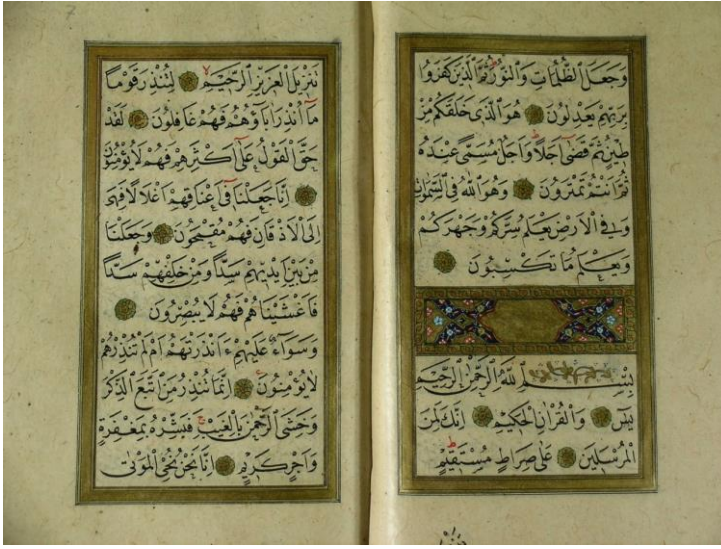 وَجَعَلَ الظُّلُمَاتِ وَالنُّورَ ثُمَّ الَّذِينَ كَفَرُوا
بِرَبِّهِمْ يَعْدِلُونَ هُوَ الَّذِي خَلَقَكُمْ مِنْ
طِينٍ ثُمَّ قَضَى أَجَلًا وَأَجَلٌ مُسَمًّى عِنْدَهُ
ثُمَّ أَنْتُمْ تَمْتَرُونَ وَهُوَ اللَّهُ فِي السَّمَوَاتِ
وَفِي الْأَرْضِ يَعْلَمُ سِرَّكُمْ وَجَهْرَكُمْ
وَيَعْلَمُ مَا تَكْسِبُونَ
بِسْمِ اللَّهِ الرَّحْمَنِ الرَّحِيمِ
يس وَالْقُرْآنِ الْحَكِيمِ إِنَّكَ لَمِنَ
الْمُرْسَلِينَ عَلَى صِرَاطٍ مُسْتَقِيمٍ
تَنْزِيلَ الْعَزِيزِ الرَّحِيمِ لِتُنْذِرَ قَوْمًا
مَا أُنْذِرَ آبَاؤُهُمْ فَهُمْ غَافِلُونَ لَقَدْ
حَقَّ الْقَوْلُ عَلَى أَكْثَرِهِمْ فَهُمْ لَا يُؤْمِنُونَ
إِنَّا جَعَلْنَا فِي أَعْنَاقِهِمْ أَغْلَالًا فَهِيَ
إِلَى الْأَذْقَانِ فَهُمْ مُقْمَحُونَ وَجَعَلْنَا
مِنْ بَيْنِ أَيْدِيهِمْ سَدًّا وَمِنْ خَلْفِهِمْ سَدًّا
فَأَغْشَيْنَاهُمْ فَهُمْ لَا يُبْصِرُونَ
وَسَوَاءٌ عَلَيْهِمْ ءَأَنْذَرْتَهُمْ أَمْ لَمْ تُنْذِرْهُمْ
لَا يُؤْمِنُونَ إِنَّمَا تُنْذِرُ مَنِ اتَّبَعَ الذِّكْرَ
وَخَشِيَ الرَّحْمَنَ بِالْغَيْبِ فَبَشِّرْهُ بِمَغْفِرَةٍ
وَأَجْرٍ كَرِيمٍ إِنَّا نَحْنُ نُحْيِي الْمَوْتَى